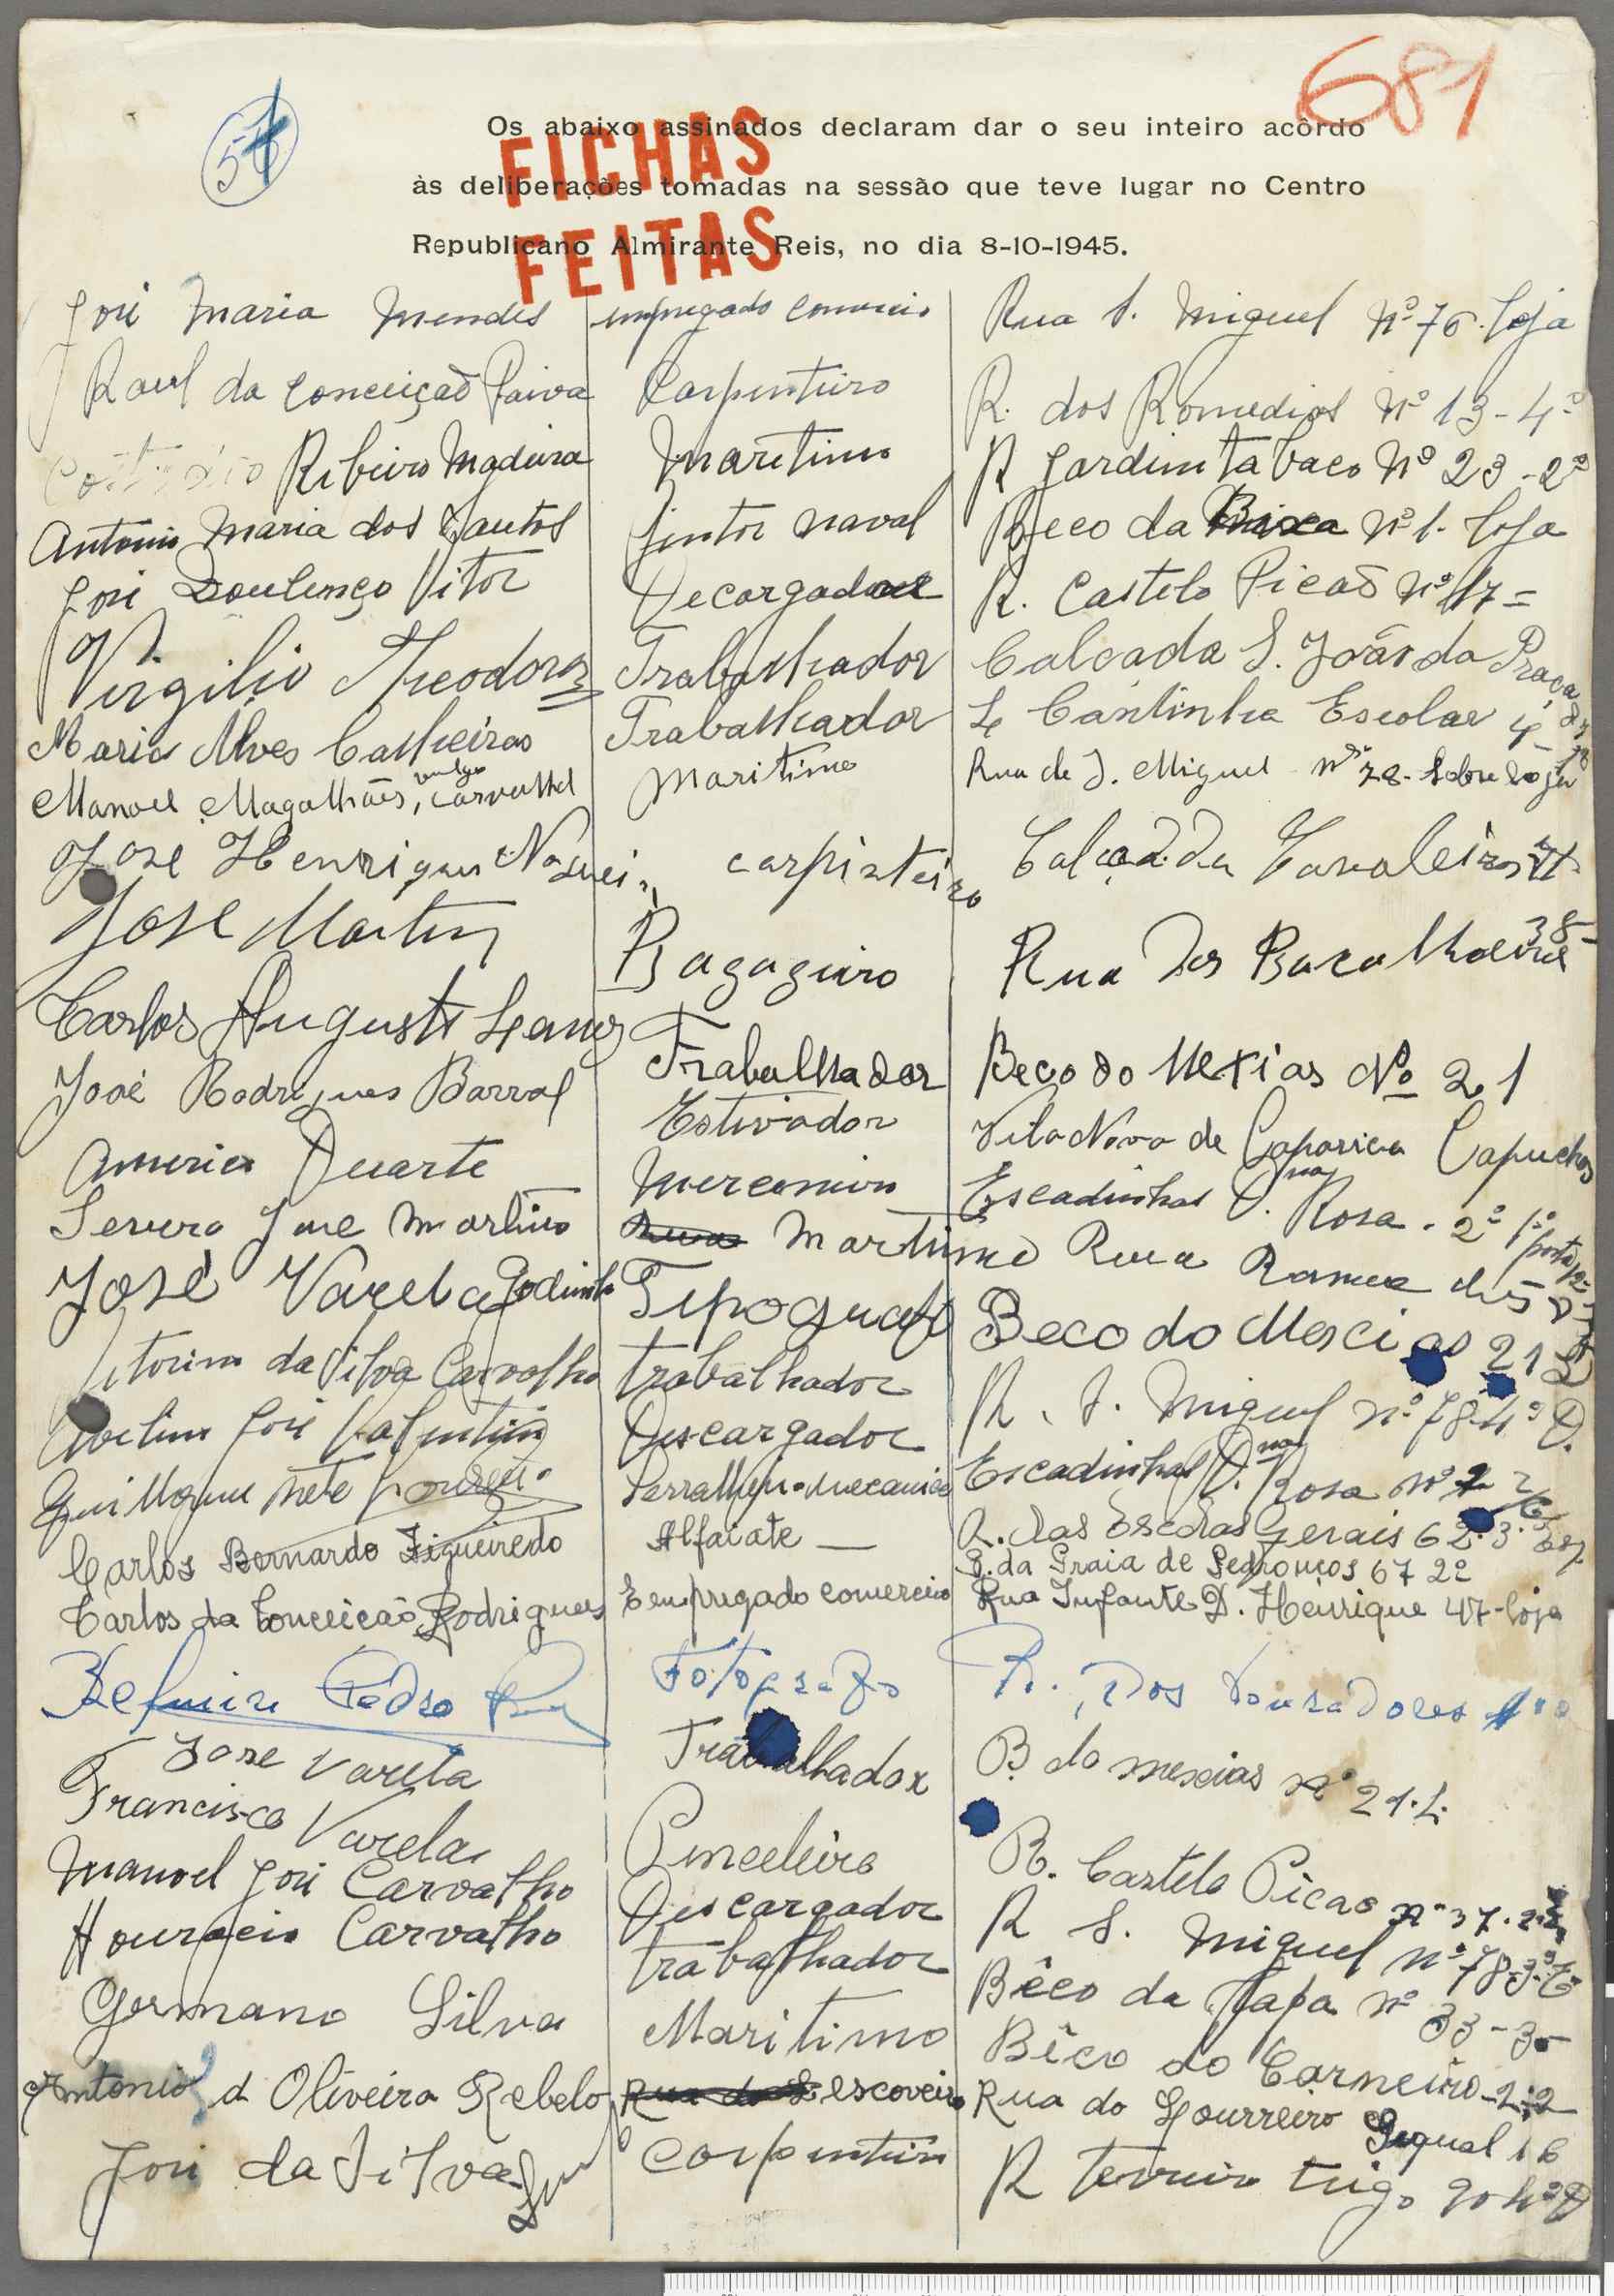 681
54
Os abaixo assinados declaram dar o seu inteiro acôrdo
às deliberações tomadas na sessão que teve lugar no Centro
Republicano Almirante Reis, no dia 8-10-1945.
FICHAS
FEITAS
José Maria Mendes empregado comercio Rua S. Miguel Nº 76 loja
Raul da Conceição Paiva Carpinteiro R. dos Remedios Nº 13-4º
Ribeiro Madeira Maritimo R Jardim Tabaco Nº 23-2º
Antonio Maria dos Santos Pintor naval Beco da Bica Nº 1. loja
José Loulenço Vitor Decargador R. Castelo Picaõ Nº 17
Virgilio Theodoro Trabalhador Calçada S. João da Praça
Mario Alves Calheiros Trabalhador L Cantinha Escolar 4-
Manoel Magalhães, vulgo Carvalhal Maritimo Rua de S. Miguel nº 78-Sobre loja
José Henriques Nogueira carpinteiro Calçada
José Martins Bagageiro Rua dos Bacalhoeiros 38-
Carlos Augusto Lemos Trabalhador Beco do Mexias Nº 21
José Rodrigues Barral Estivador Vila Nova de Caparica Capuchos
Americo Duarte Mercenario Escadinhas D. na Rosa - 2º 1ª porta
Severo José Martins Maritimo Rua
José Varela Godinho Tipografo Beco do Mescias 21 L
Vitorino da Silva Carvalho trabalhador R. S. Miguel nº 78-4º D.
Avelino José Valentim Descargador Escadinhas D. na Rosa nº 2
Guilherme Neto Loureiro Serralheiro-mecanico R. das Escolas Gerais 62-3º Esq.
Carlos Bernardo Figueiredo Alfaiate — P. da Praia de Pedrouços 67 2º
Carlos da Conceição Rodrigues Empregado comercio Rua Infante D. Henrique 47-loja
Belmiro Pedro Fotografo R. Dos Douradores
José Varela Trabalhador B. do mexias nº 21. L.
Francisco Varela Pinceleiro R. Castelo Picao nº 37. 2º
Manoel José Carvalho Descargador R S. Miguel nº 78-3º E
Houracio Carvalho trabalhador Bêco da Lapa nº 33-3º
Germano Silva Maritimo Bêco do Carneiro-2-2º
Antonio d Oliveira Rebelo escoveiro Rua do Lourreiro 16
José da Silva Carpinteiro R terreiro trigo 90 4º D